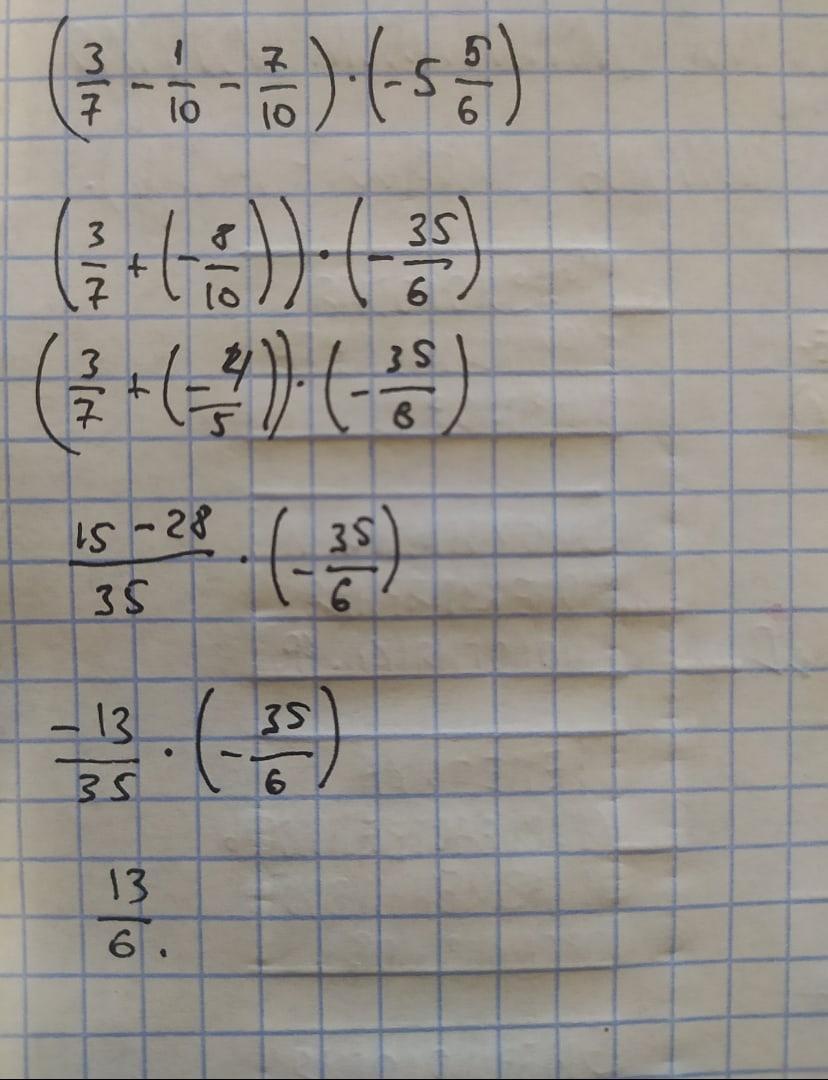 (3/7 - 1/10 - 7/10) · (-5 5/6)
(3/7 + (-8/10)) · (-35/6)
(3/7 + (-4/5)) · (-35/6)
15 - 28/35 · (-35/6)
-13/35 · (-35/6)
13/6.